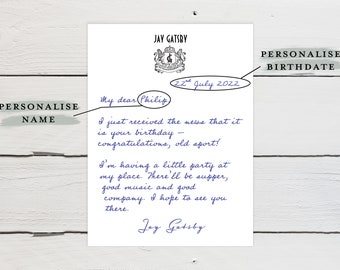 JAY GATSBY
PERSONALISE
BIRTHDATE
22nd July 2022
PERSONALISE
NAME
My dear Philip,
I just received the news that it
is your birthday –
congratulations, old sport!
I'm having a little party at
my place. There'll be supper,
good music and good
company. I hope to see you
there.
Jay Gatsby